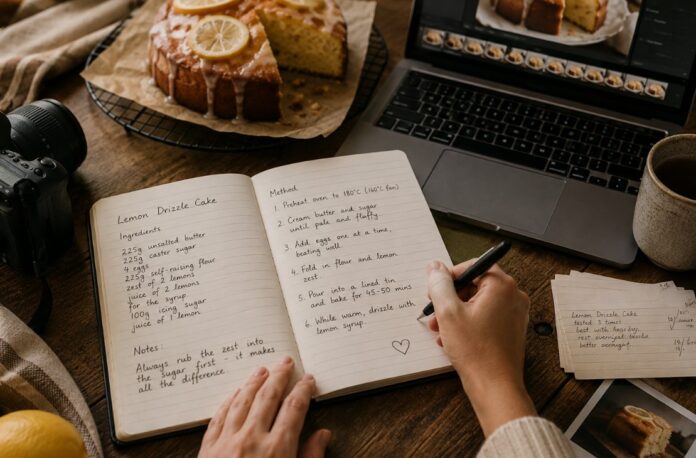 Lemon Drizzle Cake
Ingredients
225g unsalted butter
225g caster sugar
4 eggs
225g self-raising flour
zest of 2 lemons
juice of 2 lemons
for the syrup
100g icing sugar
juice of 1 lemon
Notes:
Always rub the zest into
the sugar first - it makes
all the difference.
Method
1. Preheat oven to 180°C (160°C fan)
2. Cream butter and sugar
until pale and fluffy.
3. Add eggs one at a time,
beating well.
4. Fold in flour and lemon
zest.
5. Pour into a lined tin
and bake for 45-50 mins
6. While warm, drizzle with
lemon syrup.
Lemon Drizzle Cake
tested 3 times
best with
rest overnight
butter